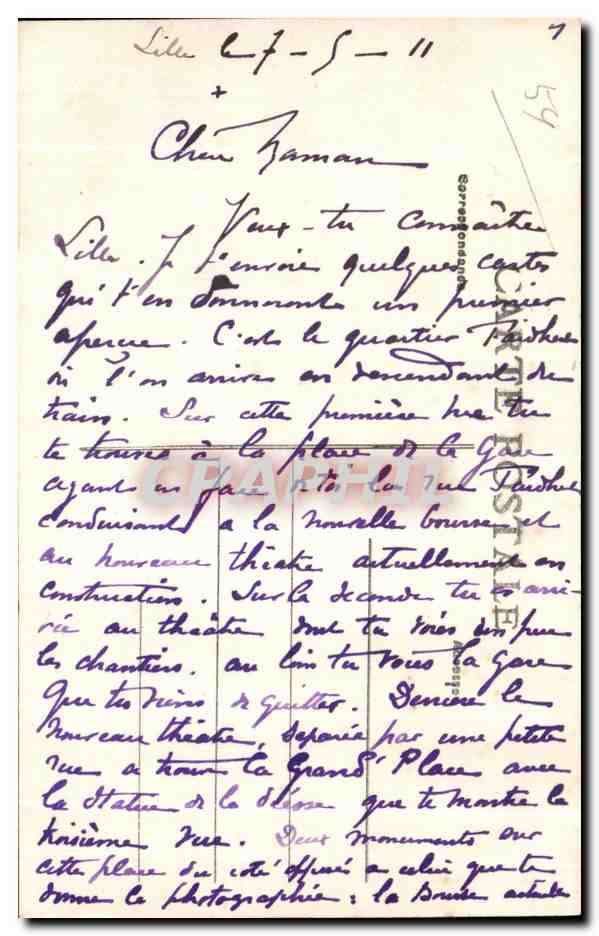 1
59
Lille le 7 - 5 - 11
+
Chère Maman
Veux-tu connaître
Lille. Je t'envoie quelques cartes
qui t'en donneront un premier
apercu. C'est le quartier Faidherbe
où l'on arrive en descendant du
train. Sur cette première vue tu
te trouves à la place de la Gare
ayant en face de toi la rue Faidherbe
conduisant a la nouvelle bourse et
au nouveau théatre actuellement en
construction. Sur la seconde tu es arri-
vée au théâtre dont tu vois un peu
les chantiers. au loin tu vois la Gare
que tu viens de quitter. Derrière le
nouveau théatre, séparée par une petite
rue se trouve la Grand' Place avec
la statue de la déesse que te montre la
troisième vue. Deux monuments sur
cette place du coté opposé a celui que te
donne la photographie : la Bourse actuelle
Correspondance
CARTE POSTALE
Adresse
CPAPHIL